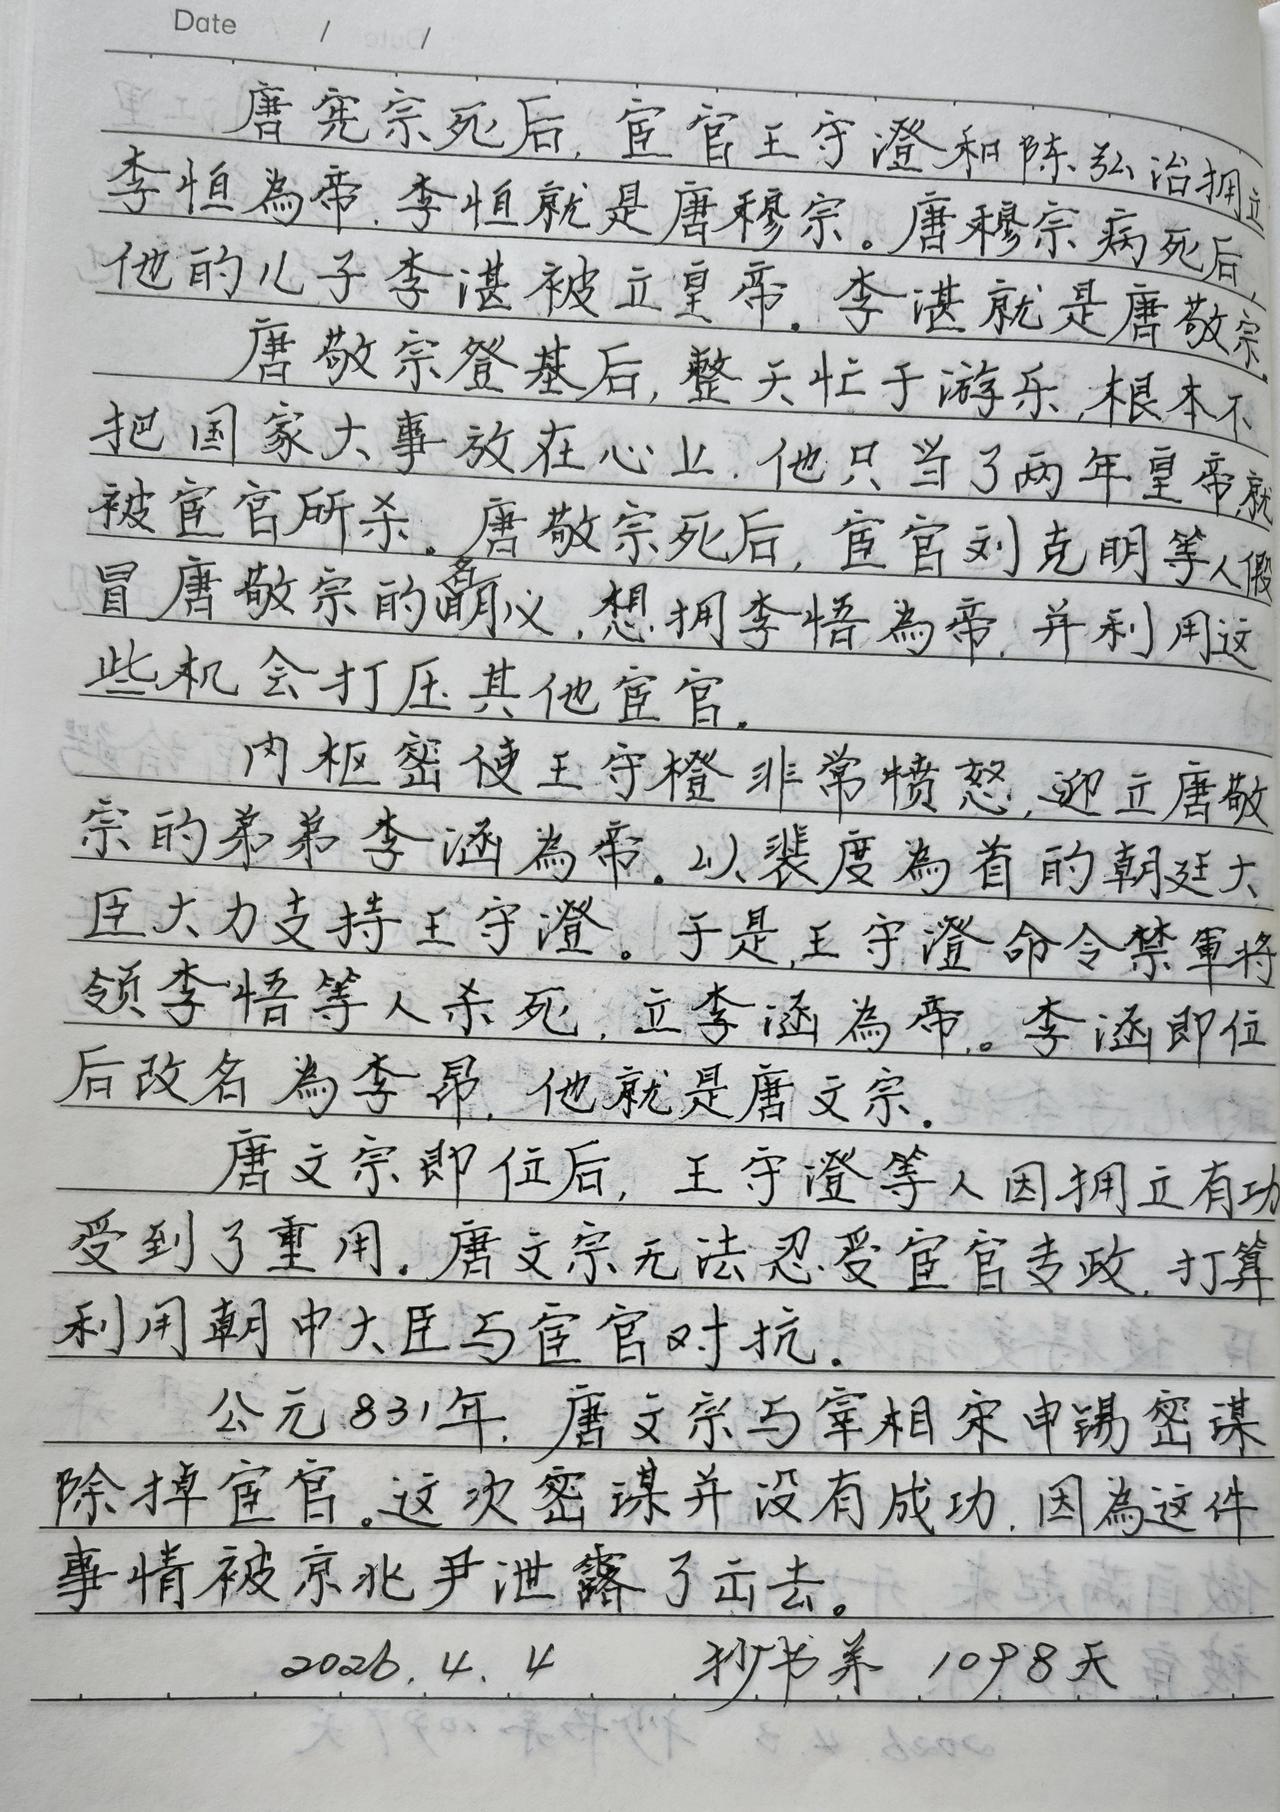 Date / /
唐宪宗死后,宦官王守澄和陈弘治拥立
李恒為帝.李恒就是唐穆宗。唐穆宗病死后,
他的儿子李湛被立皇帝.李湛就是唐敬宗.
唐敬宗登基后,整天忙于游乐,根本不
把国家大事放在心上.他只当了两年皇帝就
被宦官所杀.唐敬宗死后,宦官刘克明等人假
冒唐敬宗的名义,想拥李悟為帝,并利用这
些机会打压其他宦官.
内枢密使王守橙非常愤怒,迎立唐敬
宗的弟弟李涵為帝.以裴度為首的朝廷大
臣大力支持王守澄。于是,王守澄命令禁軍将
领李悟等人杀死,立李涵為帝。李涵即位
后改名為李昂,他就是唐文宗.
唐文宗即位后,王守澄等人因拥立有功
受到了重用.唐文宗无法忍受宦官专政,打算
利用朝中大臣与宦官对抗.
公元831年,唐文宗与宰相宋申锡密谋
除掉宦官。这次密谋并没有成功,因為这件
事情被京兆尹泄露了出去。
2026.4.4 抄书第1098天